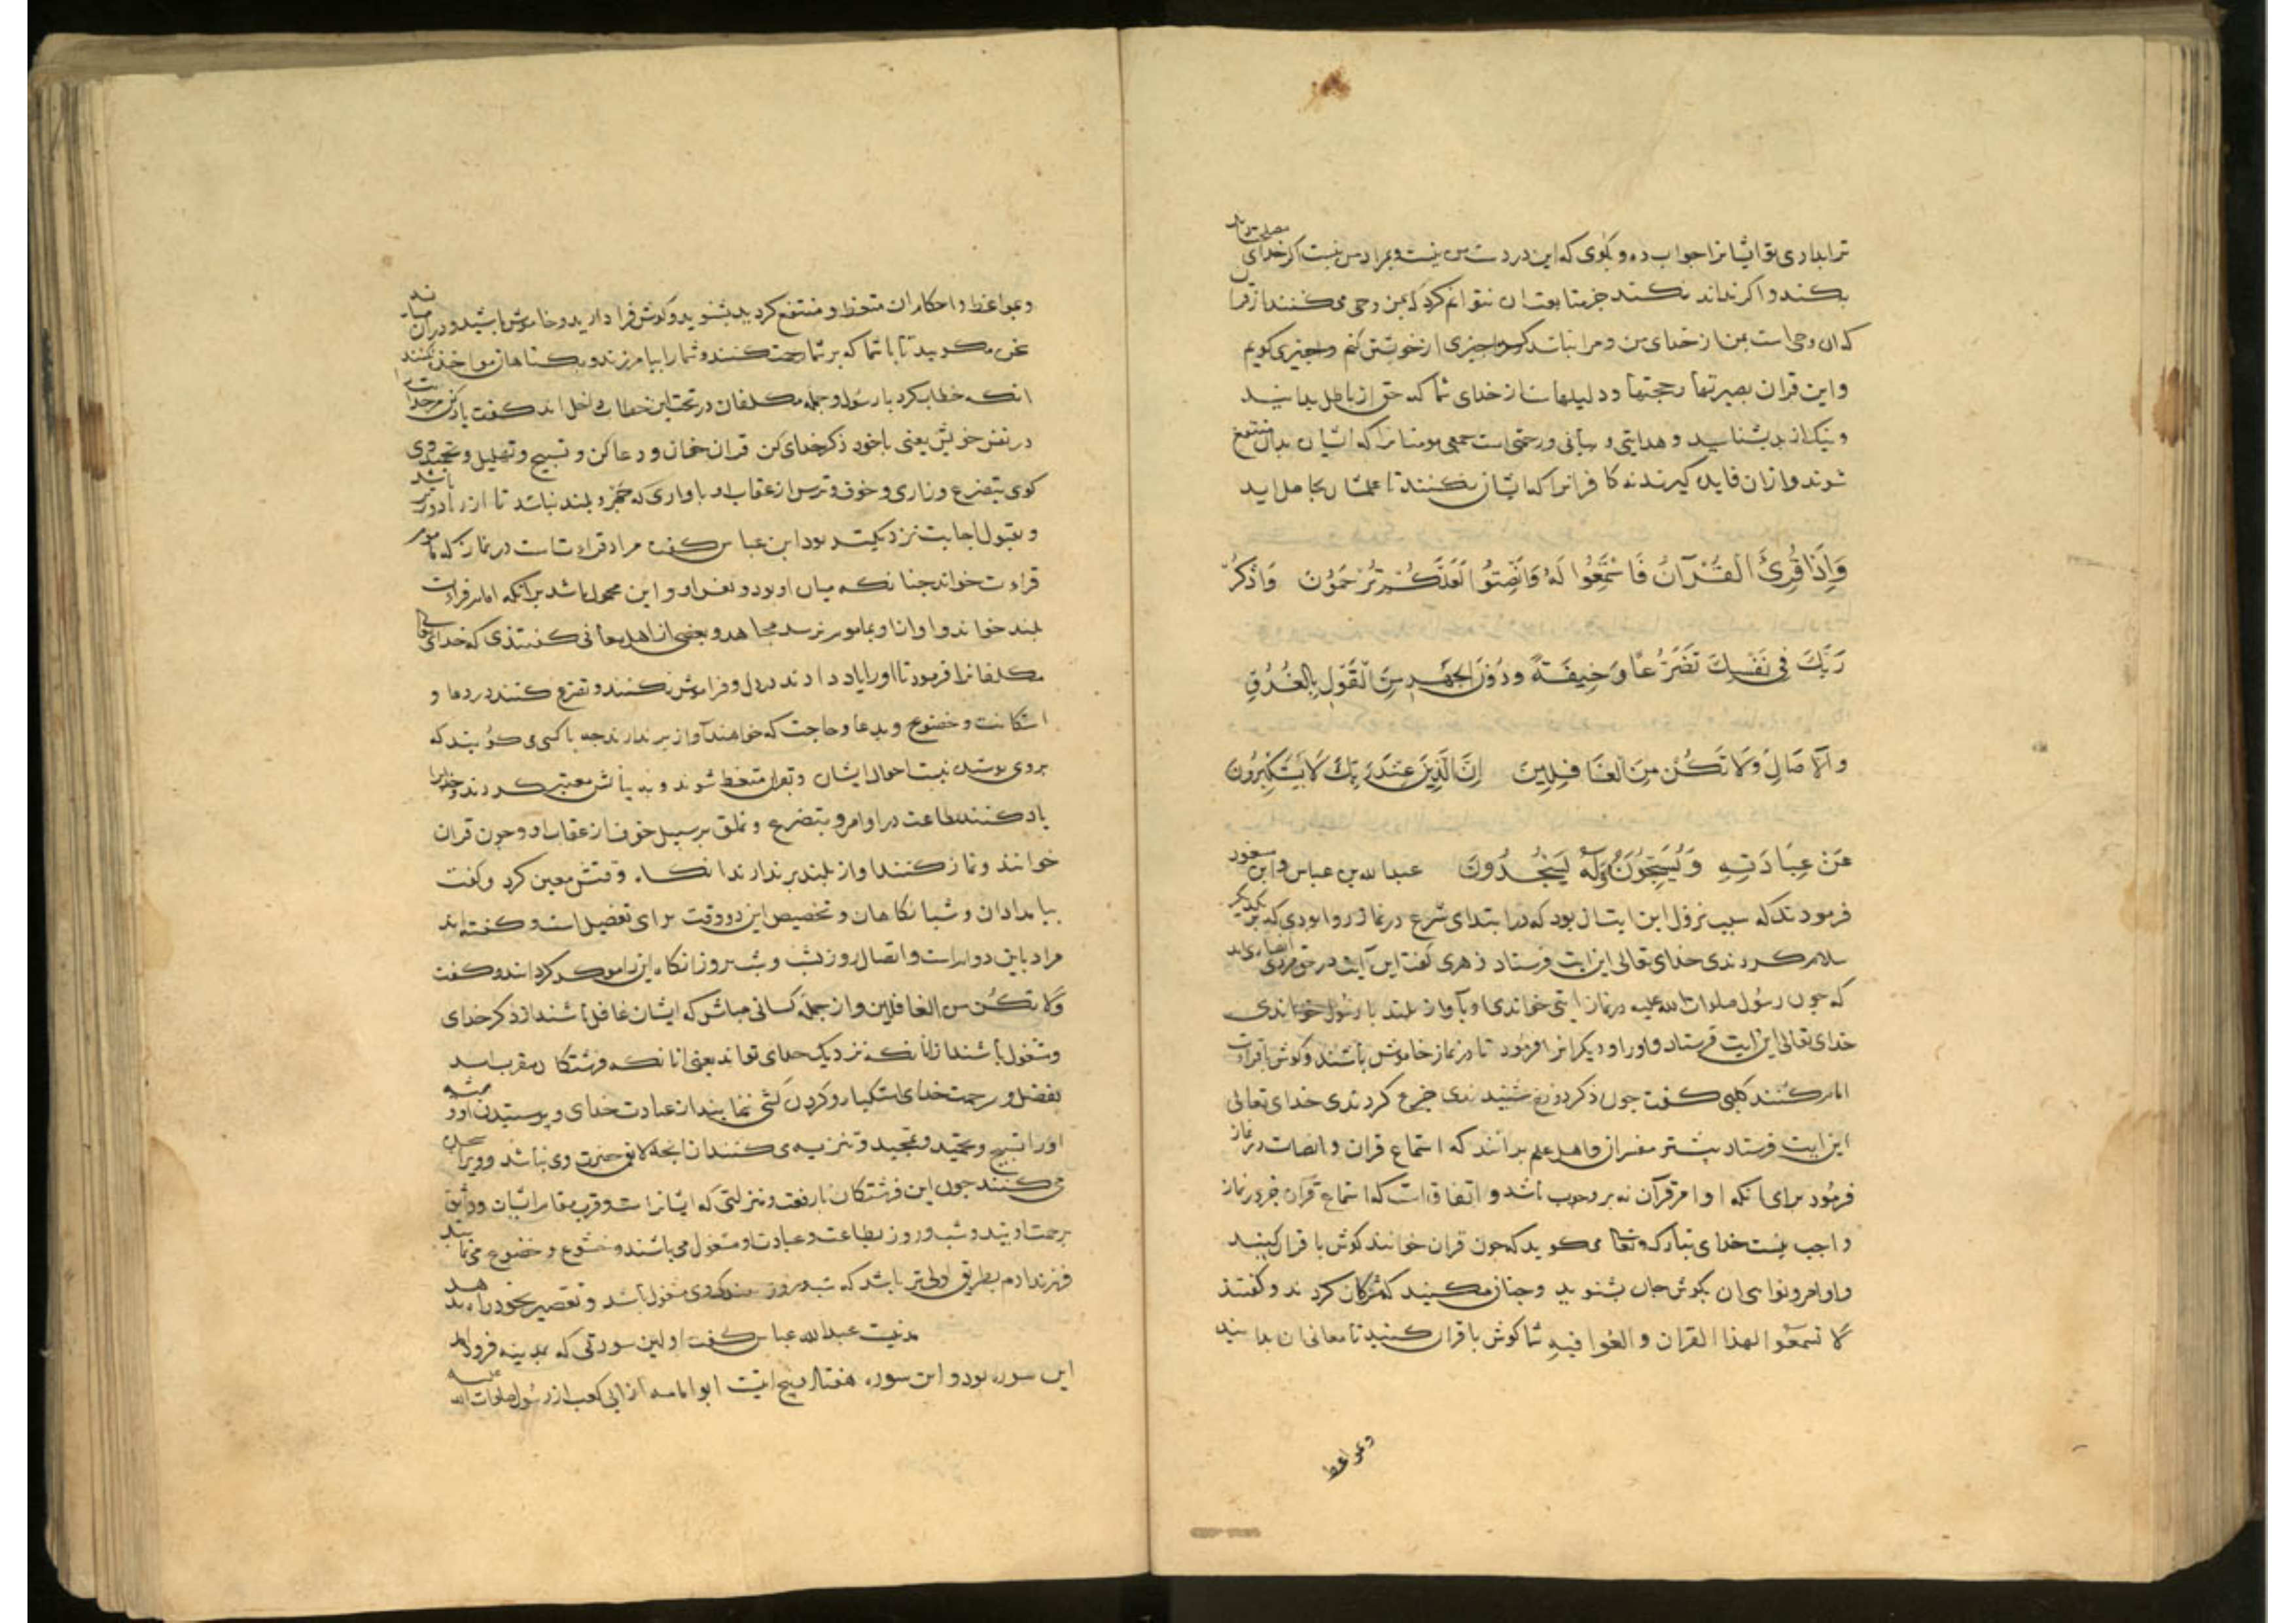 ترا بداری تو ایشانرا جواب ده و بکوی که این در دست من نیست و بمراد من نیست اکر خدای
بکند و اکر نداند نکند جز متابعت ان نتوانم کرد که بمن وحی می کنند از قران
که ان وحی است بمن از خدای من و مرا نباشد که جیزی از خویشتن کنم و جیزی کویم
و این قران بصیرتها و حجتها و دلیلهاست از خدای شما که حق از باطل بدانید
و نیک از بد بشناسید و هدایتی و بیانی و رحمتی است جمعی مومنانرا که ایشان بدان منتفع
شوند و ازان فایده کیرند نه کافرانرا که ایشان نکنند تا علمشان بحاصل اید
وَإِذَا قُرِئَ الْقُرْآنُ فَاسْتَمِعُوا لَهُ وَأَنْصِتُوا لَعَلَّكُمْ تُرْحَمُونَ وَاذْكُرْ
رَبَّكَ فِي نَفْسِكَ تَضَرُّعًا وَخِيفَةً وَدُونَ الْجَهْرِ مِنَ الْقَوْلِ بِالْغُدُوِّ
وَالْآصَالِ وَلَا تَكُنْ مِنَ الْغَافِلِينَ إِنَّ الَّذِينَ عِنْدَ رَبِّكَ لَا يَسْتَكْبِرُونَ
عَنْ عِبَادَتِهِ وَيُسَبِّحُونَهُ وَلَهُ يَسْجُدُونَ عبدالله بن عباس و ابن مسعود
فرمودند که سبب نزول این ایت ان بود که در ابتدای شرع در نماز روا بودی که بر یکدیکر
سلام کردندی خدای تعالی این ایت فرستاد زهری کفت این آیت در حق مردی انصاری امد
که جون رسول صلوات الله علیه در نماز ایتی خواندی او بآواز بلند با رسول خواندی
خدای تعالی این ایت فرستاد و او را و دیکرانرا فرمود تا در نماز خاموش باشند و کوش با قراءت
امام کنند کلبی کفت جون ذکر دوزخ شنیدندی جزع کردندی خدای تعالی
این ایت فرستاد بیشتر مفسران و اهل علم برانند که استماع قران و انصات در نماز
فرمود برای انکه اوامر قرآن نه بر وجوب باشد و اتفاق است که استماع قران جز در نماز
واجب نیست خدای تبارک وتعالی می کوید که جون قران خوانند کوش با قران کنید
و اوامر و نواهی ان بکوش جان بشنوید و جنان مکنید که مشرکان کردند و کفتند
لا تسمعوا لهذا القران و الغوا فیه شما کوش با قران کنید تا معانی ان بدانید
و بمواعظ
و بمواعظ و احکام ان متعظ و منتفع کردید بشنوید و کوش فرا دارید و خاموش باشید و دران میانه
سخن مکویید تا باشد که بر شما رحمت کنند و شما را بیامرزند و بکناهان مواخذه نکنند
انکه خطاب کرد با رسول و جمله مکلفان در تحت این خطاب داخل اند کفت یاد کن مر خدایت را
در نفس خویش یعنی با خود ذکر خدای کن قران خوان و دعا کن و تسبیح و تهلیل و تمجید وی
کوی بتضرع و زاری و خوف و ترس از عقاب او باوازی که جهر و بلند نباشد تا از ریا دورتر باشد
و بقبول اجابت نزدیکتر بود ابن عباس کفت مراد قراءت است در نماز که ماموم
قراءت خواند جنانکه میان او بود و نفس او و این محمول باشد بر آنکه امام قراءت
بلند خواند و اواز او بماموم نرسد مجاهد و بعضی از اهل معانی کفتندی که خدای تعالی
مکلفانرا فرمود تا او را یاد دارند در دل و فراموش نکنند و تضرع کنند در دعا و
استکانت و خضوع و بدعا و حاجت که خواهند آواز بر ندارند جه با کسی می کویند که
بروی بوشیده نیست احوال ایشان و بقران متعظ شوند و به بیانش معتبر کردند و خدایرا
یاد کنند بطاعت در اوامر و بتضرع و تملق بر سبیل خوف از عقاب او و جون قران
خوانند و نماز کنند اواز بلند بر ندارند انکاه وقتش معین کرد و کفت
ببامدادان و شبانکاهان و تخصیص این دو وقت برای تفضیل است و کفته اند
مراد باین دوام است و اتصال روز بشب و شب بروز انکاه این را موکد کردانند و کفت
ولا تکن من الغافلین و از جمله کسانی مباش که ایشان غافل باشند از ذکر خدای
و مشغول باشند ازانکه نزدیک خدای تو اند یعنی انانکه فرشتکان مقرب اند
بفضل و رحمت خدای استکبار و کردن کشی ننمایند از عبادت خدای و پرستیدن او و همیشه
او را تسبیح و تحمید و تمجید و تنزیه می کنند از انجه لایق حضرت وی نباشد و ویرا سجده
می کنند جون این فرشتکان با رفعت و منزلتی که ایشانراست و قرب مقام ایشان و واثق
برحمت اویند و شب و روز بطاعت و عبادت او مشغول می باشند و خشوع و خضوع می نمایند
فرزند ادم بطریق اولی تر باشد که شب و روز بندکی وی مشغول باشد و تقصیر بخود راه ندهد
مدنیست عبدالله عباس کفت اولین سورتی که بمدینه فرود امد
این سوره بود و این سوره هفتاد و پنج ایتست ابو امامه از ابی کعب از رسول صلوات الله علیه